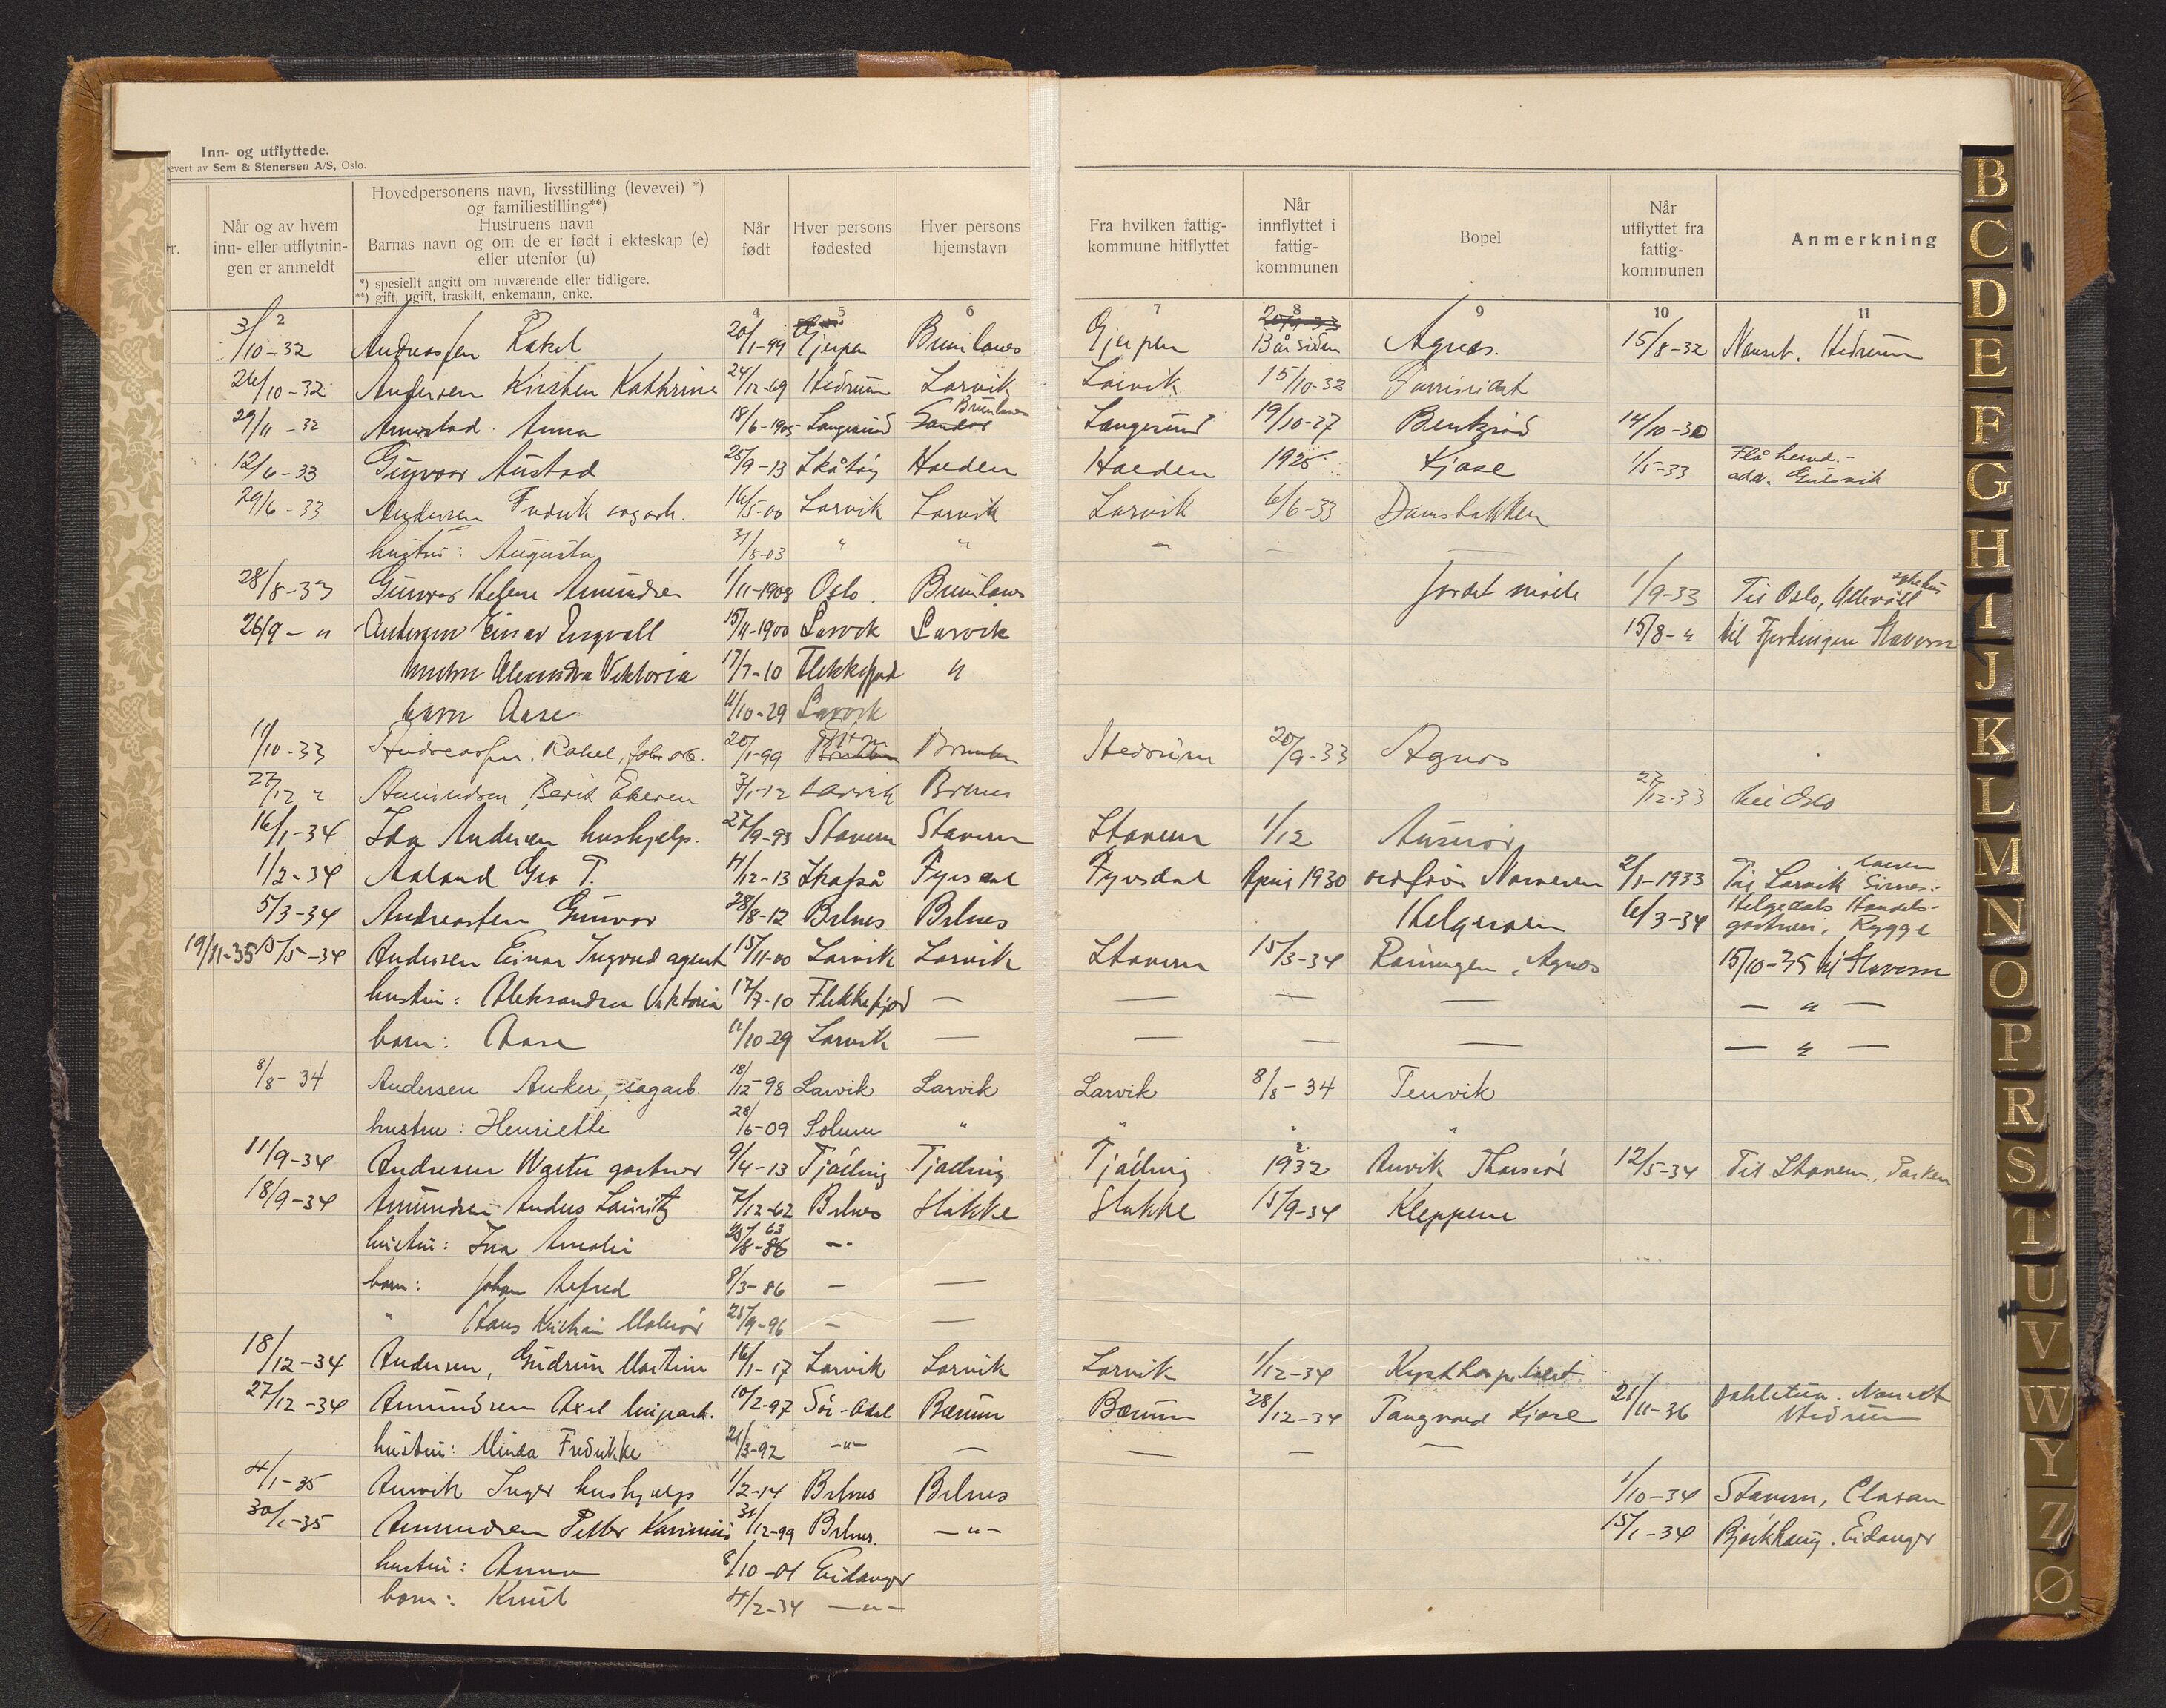 Inn- og utflyttede.
evert av Sem & Stenersen A/S, Oslo.
nr.
Når og av hvem
inn- eller utflytnin-
gen er anmeldt
Hovedpersonens navn, livsstilling (levevei) *)
og familiestilling**)
Hustruens navn
Barnas navn og om de er født i ekteskap (e)
eller utenfor (u)
*) spesiellt angitt om nuværende eller tidligere.
**) gift, ugift, fraskilt, enkemann, enke.
Når
født
Hver persons
fødested
Hver persons
hjemstavn
Fra hvilken fattig-
kommune hitflyttet
Når
innflyttet i
fattig-
kommunen
Bopel
Når
utflyttet fra
fattig-
kommunen
Anmerkning
2 4 5 6 7 8 9 10 11
3/10-32 Andreassen Rakel 20/1-99 Gjerpen Brunlanes Gjerpen 13 år siden Agnes. 15/8-32 Nanset. Hedrum
26/10-32 Andersen Kirsten Kathrine 24/12-69 Hedrum Larvik Larvik 15/10-32
29/11-32 Anna 18/6-1905 Langesund Sandar Brunlanes Langesund 19/10-27 14/10-30
12/6-33 Gunvor Austad 25/9-13 Skåtøy Halden Halden 1925 Kjose 1/5-33 Flå herred.-
adr. Gulsvik
29/6-33 Andersen Fredrik sagarb. 16/5-00 Larvik Larvik Larvik 6/6-33 Damsbakken
hustru: Augusta 31/8-03 " " — —
28/8-33 Gunvor Helene Amundsen 1/11-1908 Oslo. Brunlanes 1/9-33 Til Oslo, Ullevåll sykehus
26/9-" Andersen Einar Ingvall 15/11-1900 Larvik Larvik 15/8-" til Stavern
hustru Alexandra Viktoria 17/7-10 Flekkefjord "
barn Aase 11/10-29 Larvik
11/10-33 Andreassen, Rakel, fabr.arb. 20/1-99 Hedrum 20/9-33 Agnes
27/12 " Amundsen, Berit Ekeren 3/1-12 Larvik Brlnes 27/12-33 til Oslo
16/1-34 Ida Andersen hushjelp. 27/9-93 Stavern Stavern Stavern 1/12
1/2-34 Aaland Gro T. 11/12-13 Skafså Fyresdal Fyresdal April 1930 2/1-1933 Til Larvik
5/3-34 Andreassen Gunvor 28/8-12 Brlnes Brlnes Helgeroen 6/3-34 Helgedals Handels-
gartneri, Rygge
19/11-35 15/5-34 Andersen Einar Ingvald agent 15/11-00 Larvik Larvik Stavern 15/3-34 Agnes 15/10-35 til Stavern
hustru: Aleksandra Viktoria 17/7-10 Flekkefjord — — — — — " —
barn: Aase 11/10-29 Larvik — — — — — " —
8/8-34 Andersen Anker, sagarb. 18/12-98 Larvik Larvik Larvik 8/8-34 Tenvik
hustru: Henriette 28/6-09 Solum " " " "
11/9-34 Andresen gartner 9/4-13 Tjølling Tjølling Tjølling 1932 Anvik 12/5-34 Til Stavern, Parken
18/9-34 Amundsen Anders Lauritz 7/12-62 Brlnes Stokke Stokke 15/9-34 Kleppene
hustru: Ina Amalie 25/8-86 63 —
barn: Johan Alfred 8/3-86 — —
" Hans Kristian 25/9-96 — —
18/12-34 Andersen, Gudrun Martine 16/1-17 Larvik Larvik Larvik 1/12-34 Kysthospitalet
27/12-34 Amundsen Axel 10/2-97 Sør-Odal Bærum Bærum 28/12-34 Tangvald Kjose 21/11-36 Nanset
Hedrum
hustru: Minda Fredrikke 21/3-92 -"- — — — —
4/1-35 Anvik Inger hushjelp 1/2-14 Brlnes Brlnes 1/10-34 Stavern, Clasan
30/1-35 Amundsen Petter 31/12-99 Brlnes. -"- 15/1-34 Bjørkhaug. Eidanger
hustru: Anna 8/10-01 Eidanger
barn: Knut 4/2-34 -"-
B
C
D
E
F
G
H
I
J
K
L
M
N
O
P
R
S
T
U
V
W
Y
Z
Ø